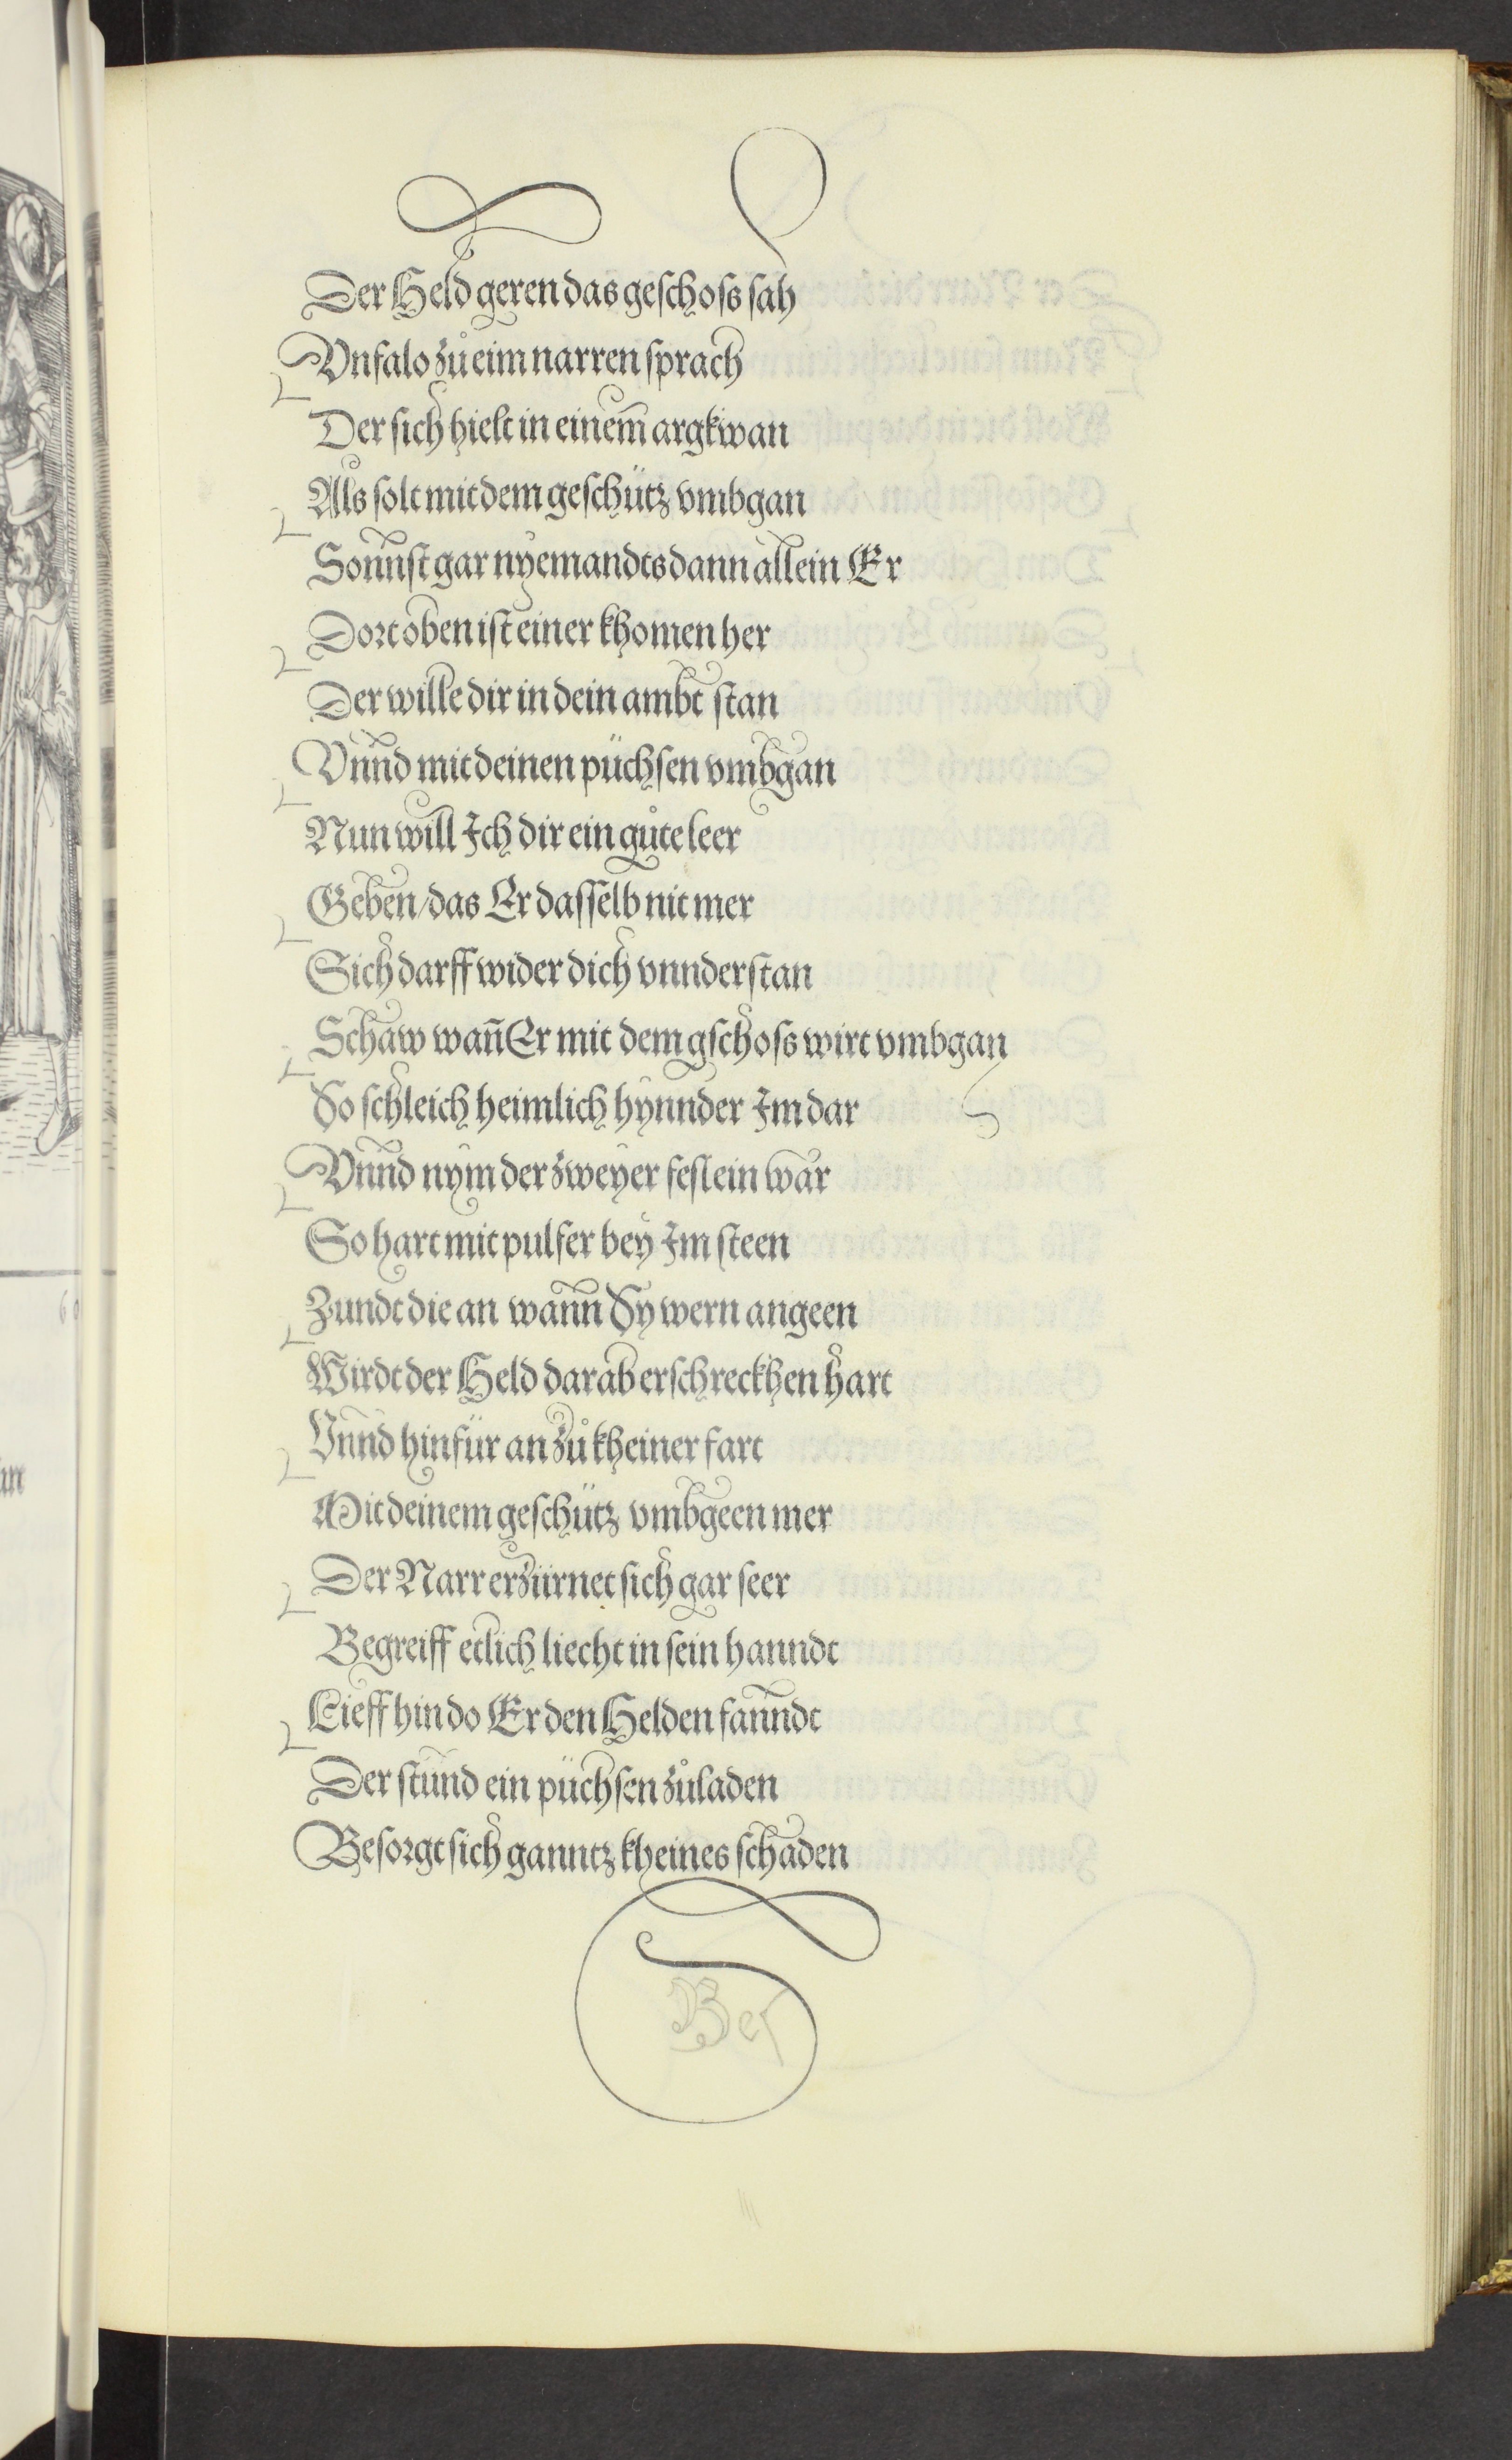 Der Held geren das geschoss sah
Vnfalo zůeim narren sprach
Der sich hielt in einem̄ argkwan
Als solt mit dem geschütz vmbgan
Sonnst gar nyemandts dann allein Er
Dort oben ist einer khomen her
Der wille dir in dein ambt stan
Vnnd mit deinen püchsen vmbgan
Nun will Ich dir ein gůte leer
Geben/das Er dasselb nit mer
Sich darff wider dich vnnderstan
Schaw wañ Er mit dem gschoss wirt vmbgan
So schleich heimlich hynnder Im dar
Vnnd nym der zweyer feslein war
So hart mit pulfer bey Im steen
Zundt die an wann Sy wern angeen
Wirdt der Held darab erschreckhen hart
Vnnd hinfür an zů kheiner fart
Mit deinem geschütz vmbgeen mer
Der Narr erzürnet sich gar seer
Begreiff etlich liecht in sein hanndt
Lieff hin do Er den Helden fanndt
Der stund ein püchsen zůladen
Besorgt sich ganntz kheines schaden